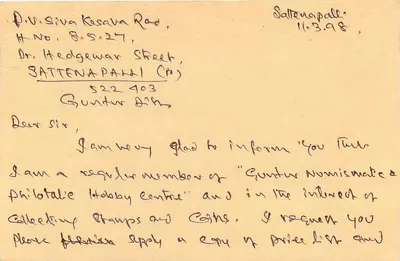 P.V. Siva Kesava Rao,
H. No. 8.5.27,
Dr. Hedgewar Street,
SATTENAPALLI (P)
522 403
Guntur Dist
Sattenapalli
11.3.98,
Dear Sir,
I am very glad to inform you that
I am a regular member of "Guntur Numismatic &
Philatelic Hobby Centre" and in the interest of
Collecting Stamps and Coins. I request you
Please supply a copy of price list and